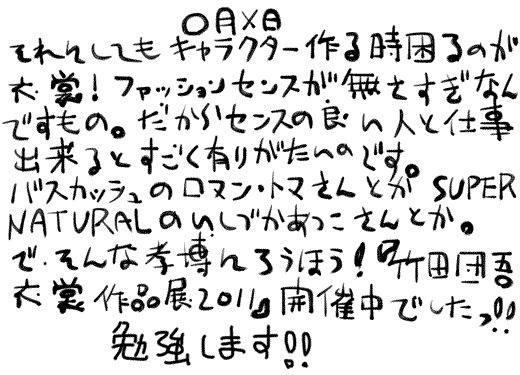 〇月×日
それにしてもキャラクター作る時困るのが
衣裳!ファッションセンスが無さすぎなん
ですもの。だからセンスの良い人と仕事
出来るとすごく有りがたいのです。
バスカッシュのロマン・トマさんとか SUPER
NATURALのいしづかあつこさんとか。
で、そんな孝博にろうほう!『竹田団吾
衣裳作品展2011』開催中でしたっ!!
勉強します!!